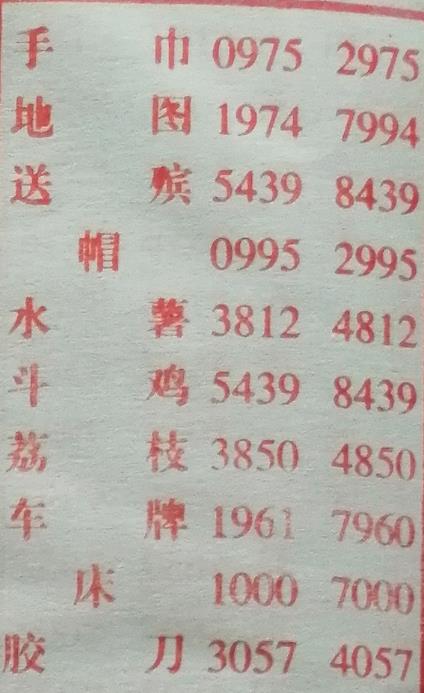 手巾 0975 2975
地图 1974 7994
送殡 5439 8439
帽 0995 2995
水薯 3812 4812
斗鸡 5439 8439
荔枝 3850 4850
车牌 1961 7960
床 1000 7000
胶刀 3057 4057